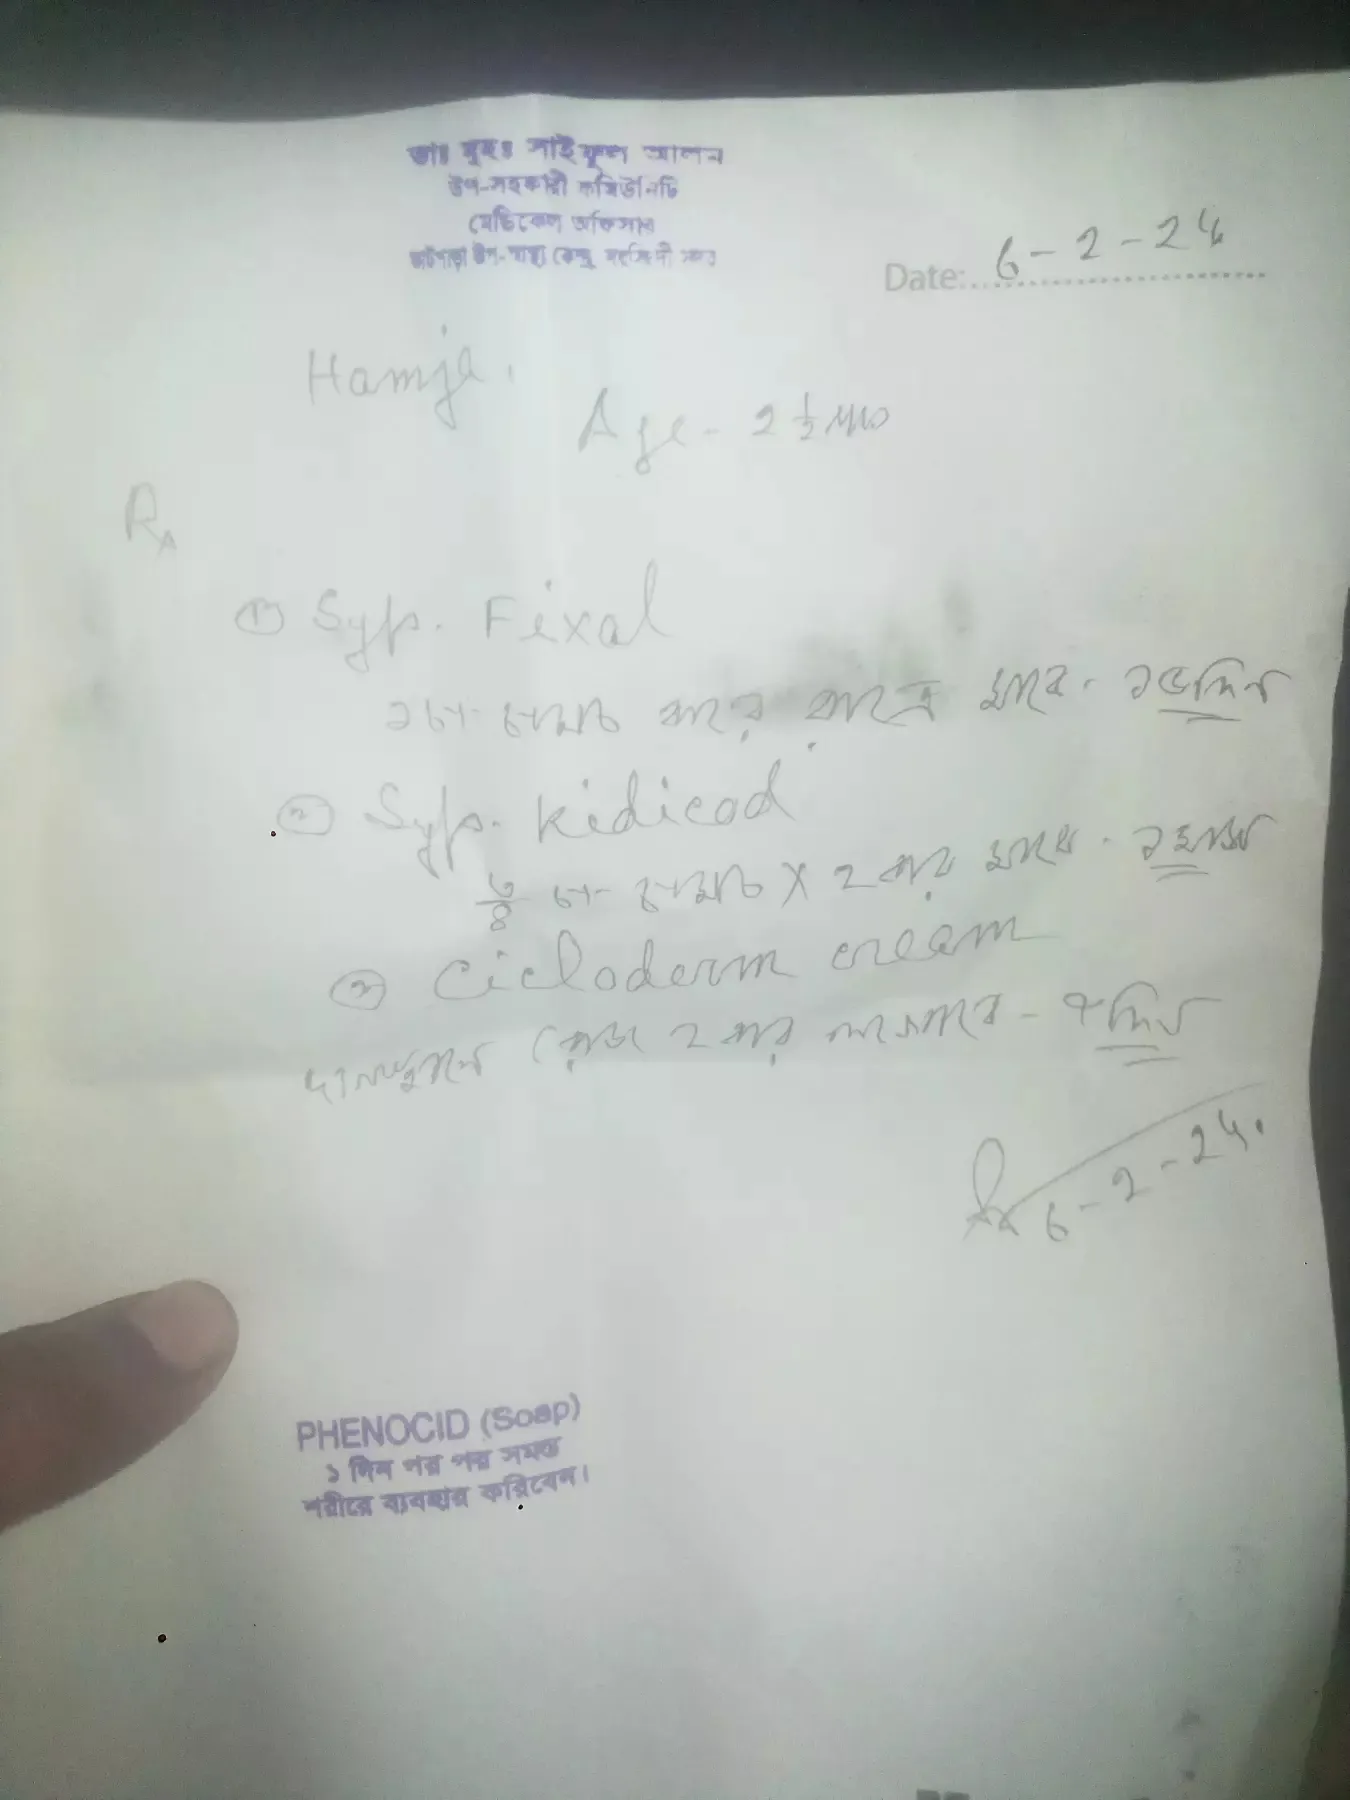 ডাঃ মুহঃ সাইফুল আলম
উপ-সহকারী কমিউনিটি
মেডিকেল অফিসার
উপ-স্বাস্থ্য কেন্দ্র
Date: 6-2-24
Hamja.
Age - 2 1/2
Rx
① Syp. Fixal
চা চামচ করে রাত্রে খাবে - দিন
② Syp. Kidicod
৩/৪ চা চামচ X ২ বার খাবে - ১ মাস
③ Cicloderm cream
রোজ ২ বার লাগাবে - দিন
6-2-24.
PHENOCID (Soap)
১ দিন পর পর সমস্ত
শরীরে ব্যবহার করিবেন।